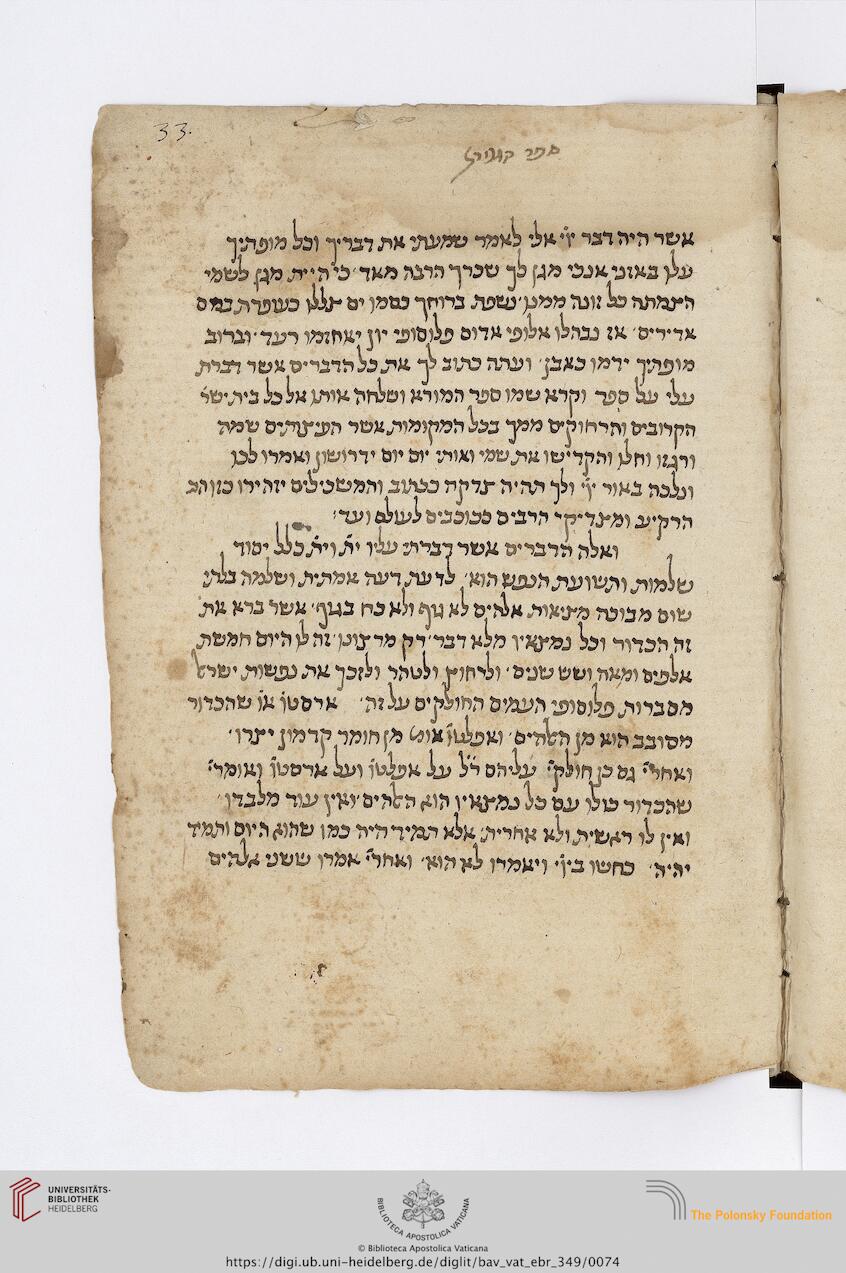 33.
ספר
אשר היה דבר יי' אלי לאמר שמעתי את דבריך וכל מופתיך
עלו באזני אנכי מגן לך שכרך הרבה מאד' כי היית מגן לשמי
כל זונה ממנו נשפת ברוחך כסמו ים צללו כעופרת במים
אדירים' אז נבהלו אלופי אדום פלוסופי יון יאחזמו רעד' וברוב
מופתיך ידמו כאבן' ועתה כתוב לך את כל הדברים אשר דברת
עלי על ספר וקרא שמו ספר המורא ושלחה אותו אל כל בית ישר'
הקרובים והרחוקים ממך בכל המקומות אשר הפיצותים שמה
ורגזו וחלו והקדישו את שמי ואותי יום יום ידרושון ואמרו לכו
ונלכה באור יי' ולך תהיה צדקה ככתוב והמשכילים יזהירו כזוהר
הרקיע ומצדיקי הרבים ככוכבים לעולם ועד'
ואלה הדברים אשר דברתי עליו ית' וית' כלל יסוד
שלמות ותשועת הנפש הוא' לדעת דעה אמתית ושלמה בלתי
שום מבוכה מציאות אלהים לא גוף ולא כח בגוף' אשר ברא את
זה הכדור וכל נמצאיו מלא דבר' רק מרצונו' זה לו היום חמשת
אלפים ומאה ושש שנים' ולרחוץ ולטהר ולזכך את נפשות ישראל
מסברות פלוסופי העמים החולקים על זה' ארסטו או' שהכדור
מסובב הוא מן האלהים' ואפלטו אומ' מן חומר קדמון יצרו'
ואחרי' גם כן חולקי' עליהם ר"ל על אפלטו ועל ארסטו ואומרי'
שהכדור כולו עם כל נמצאיו הוא האלהים' ואין עוד מלבדו'
ואין לו ראשית ולא אחרית' אלא תמיד היה כמו שהוא היום ותמיד
יהיה' כחשו ביי' ויאמרו לא הוא' ואחרי' אמרו ששני אלהים
UNIVERSITÄTS-
BIBLIOTHEK
HEIDELBERG
BIBLIOTECA APOSTOLICA VATICANA
The Polonsky Foundation
© Biblioteca Apostolica Vaticana
https://digi.ub.uni-heidelberg.de/diglit/bav_vat_ebr_349/0074